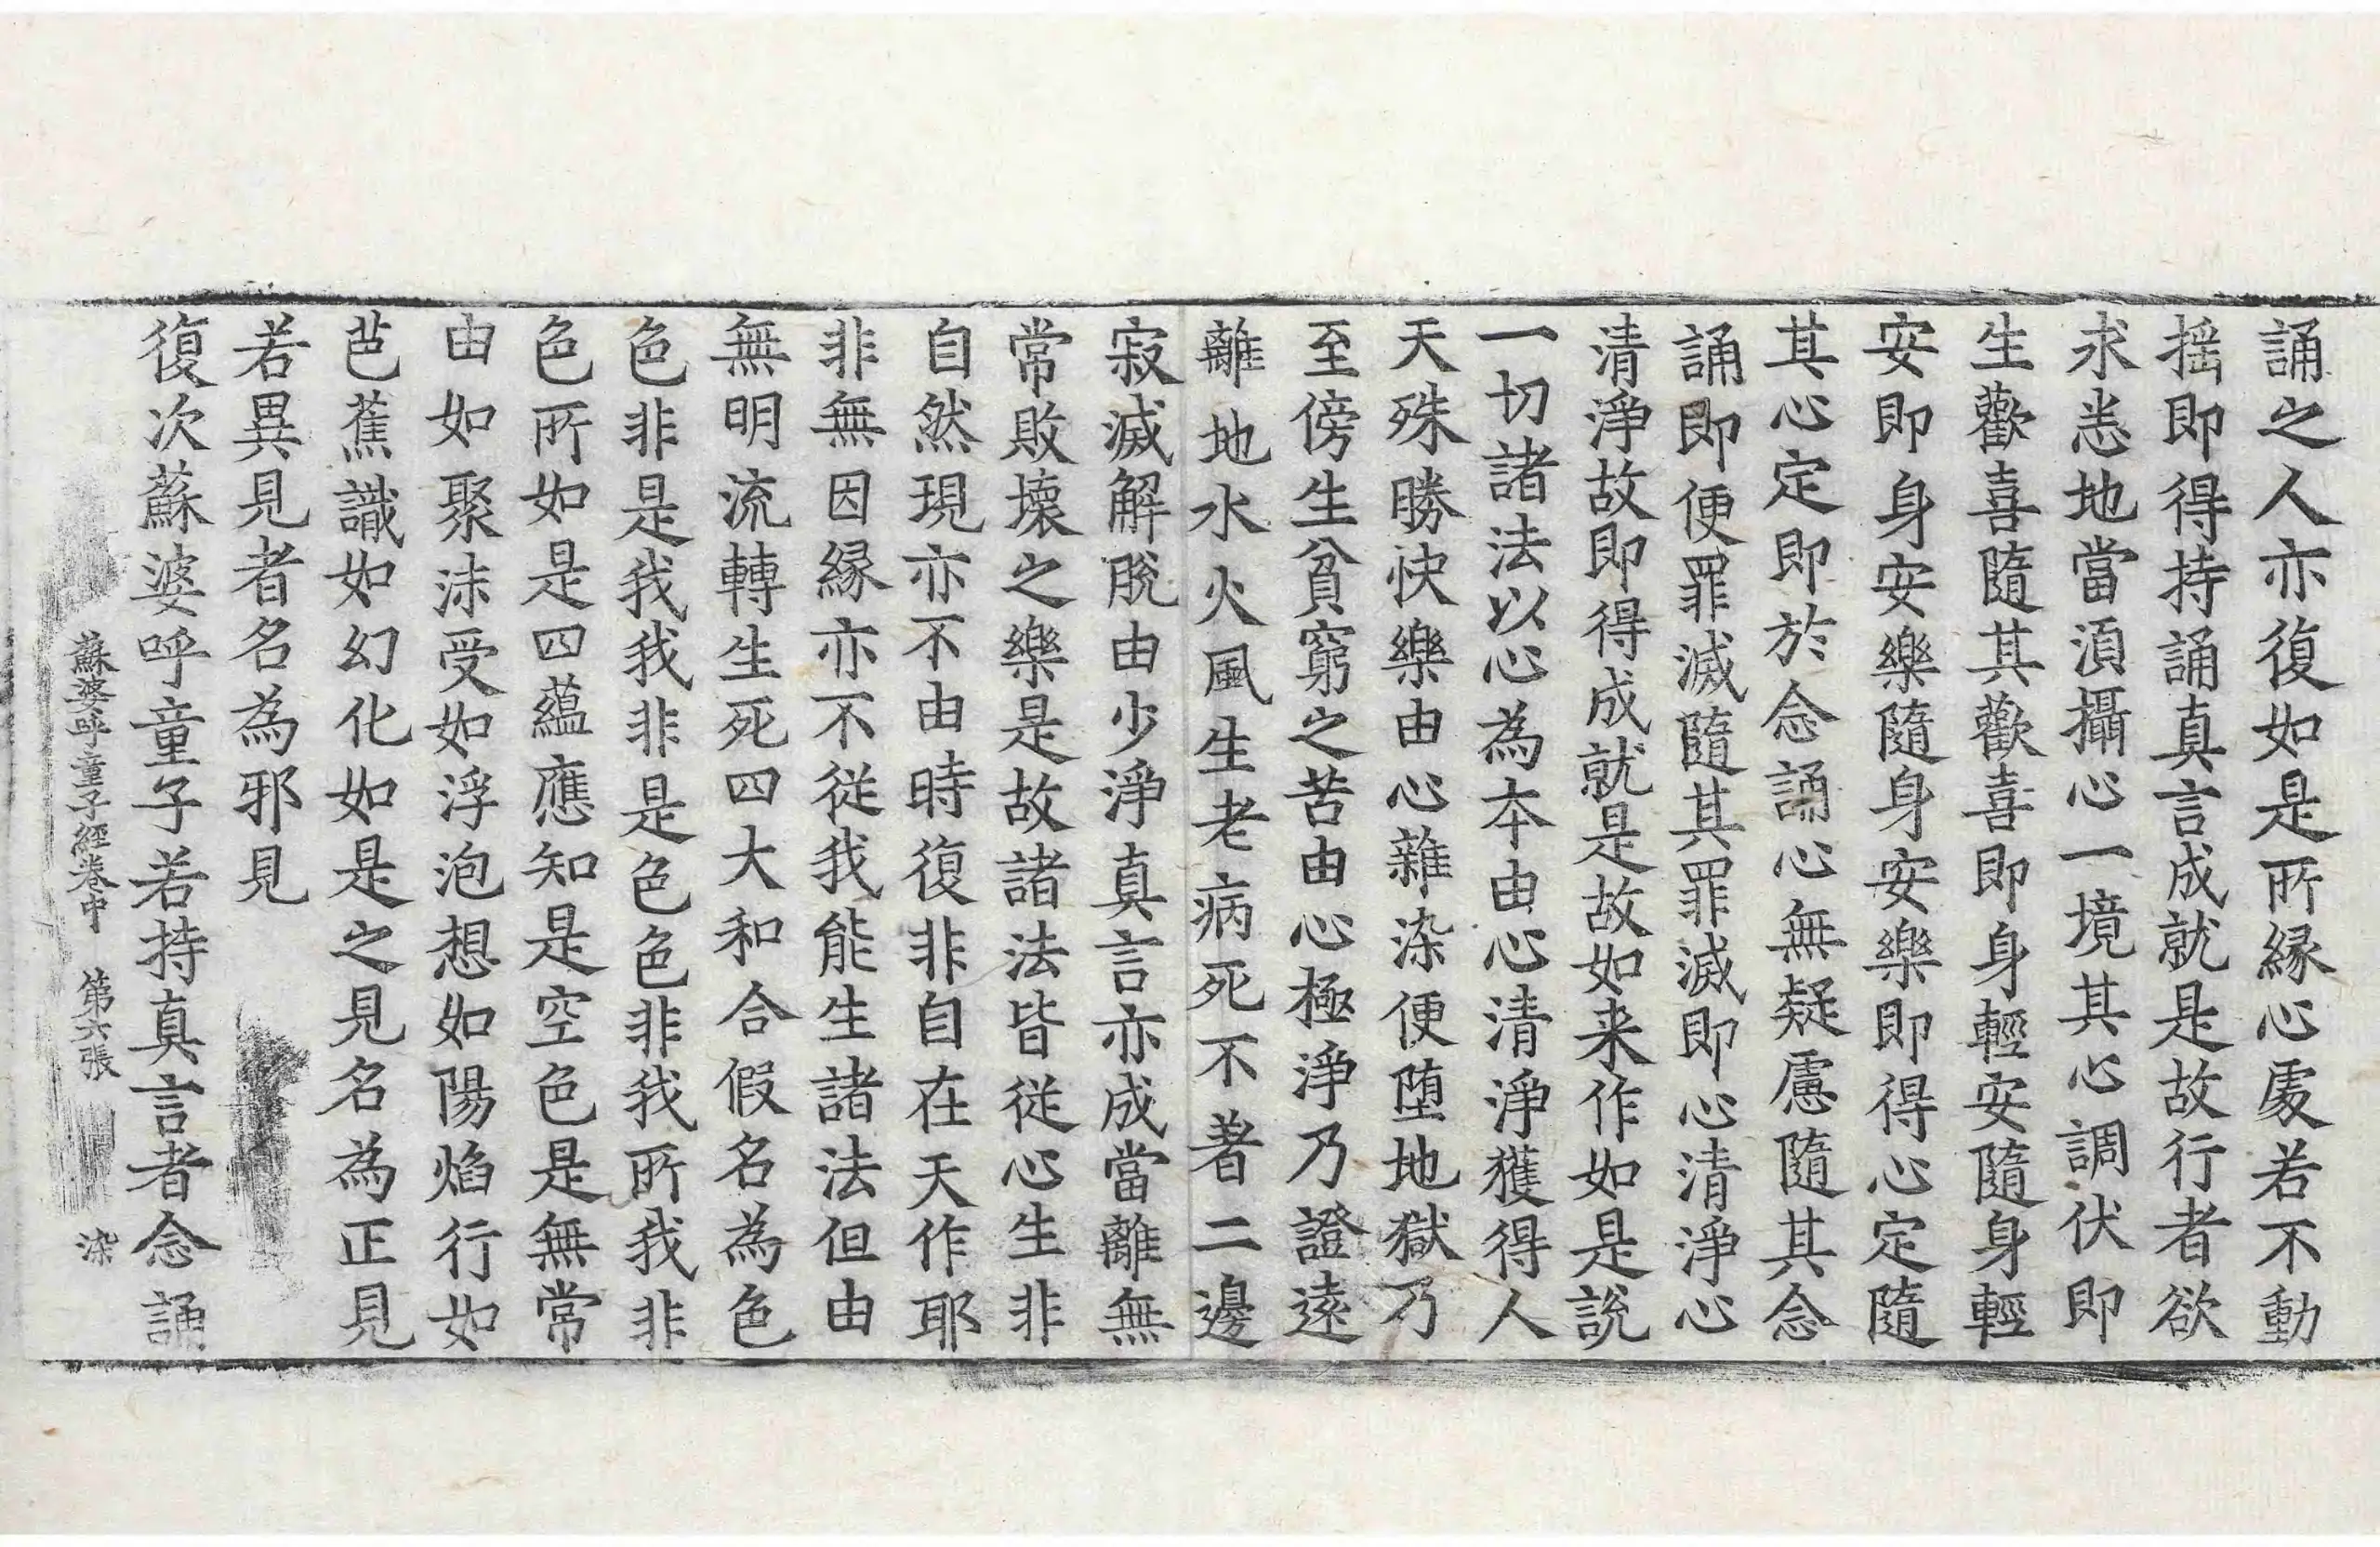 誦之人亦復如是所緣心處若不動
搖即得持誦真言成就是故行者欲
求悉地當須攝心一境其心調伏即
生歡喜隨其歡喜即身輕安隨身輕
安即身安樂隨身安樂即得心定隨
其心定即於念誦心無疑慮隨其念
誦即便罪滅隨其罪滅即心清淨心
清淨故即得成就是故如来作如是說
一切諸法以心為本由心清淨獲得人
天殊勝快樂由心雜染便墮地獄乃
至傍生貧窮之苦由心極淨乃證遠
離地水火風生老病死不著二邊
寂滅解脫由少淨真言亦成當離無
常敗壞之樂是故諸法皆從心生非
自然現亦不由時復非自在天作耶
非無因緣亦不從我能生諸法但由
無明流轉生死四大和合假名為色
色非是我我非是色色非我所我非
色所如是四蘊應知是空色是無常
由如聚沫受如浮泡想如陽焰行如
芭蕉識如幻化如是之見名為正見
若異見者名為邪見
復次蘇婆呼童子若持真言者念誦
蘇婆呼童子經卷中　第六張　染